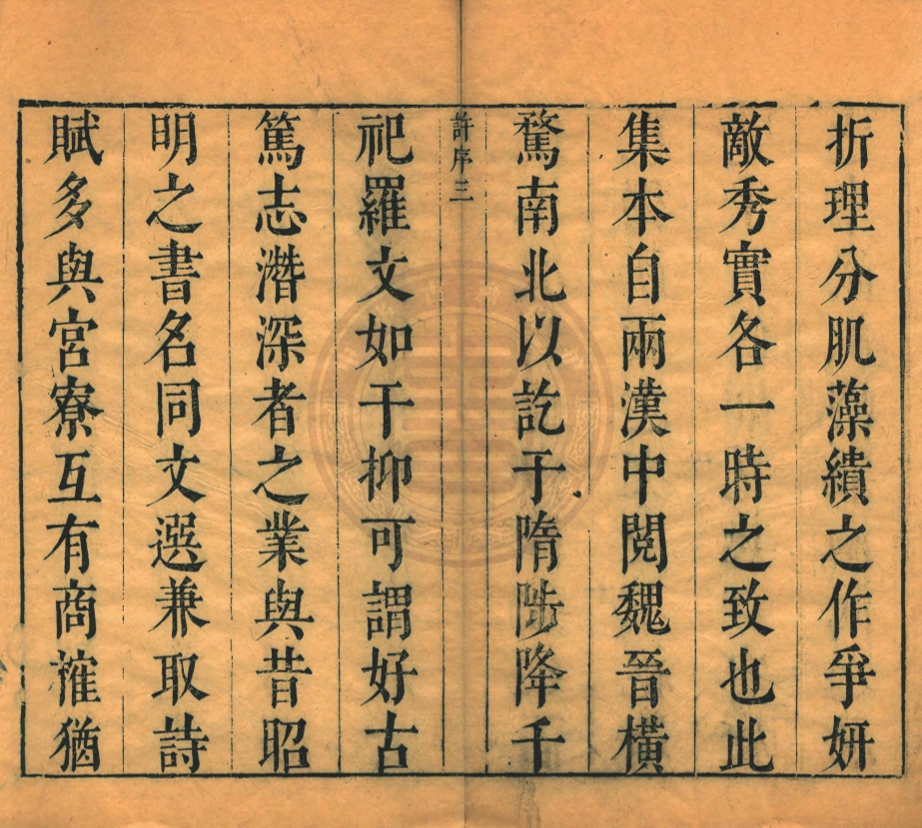 折理分肌藻繢之作爭妍
敵秀實各一時之致也此
集本自兩漢中閱魏晉橫
騖南北以訖于隋陟降千
許序三
祀羅文如干抑可謂好古
篤志潛深者之業與昔昭
明之書名同文選兼取詩
賦多與宮寮互有商榷猶